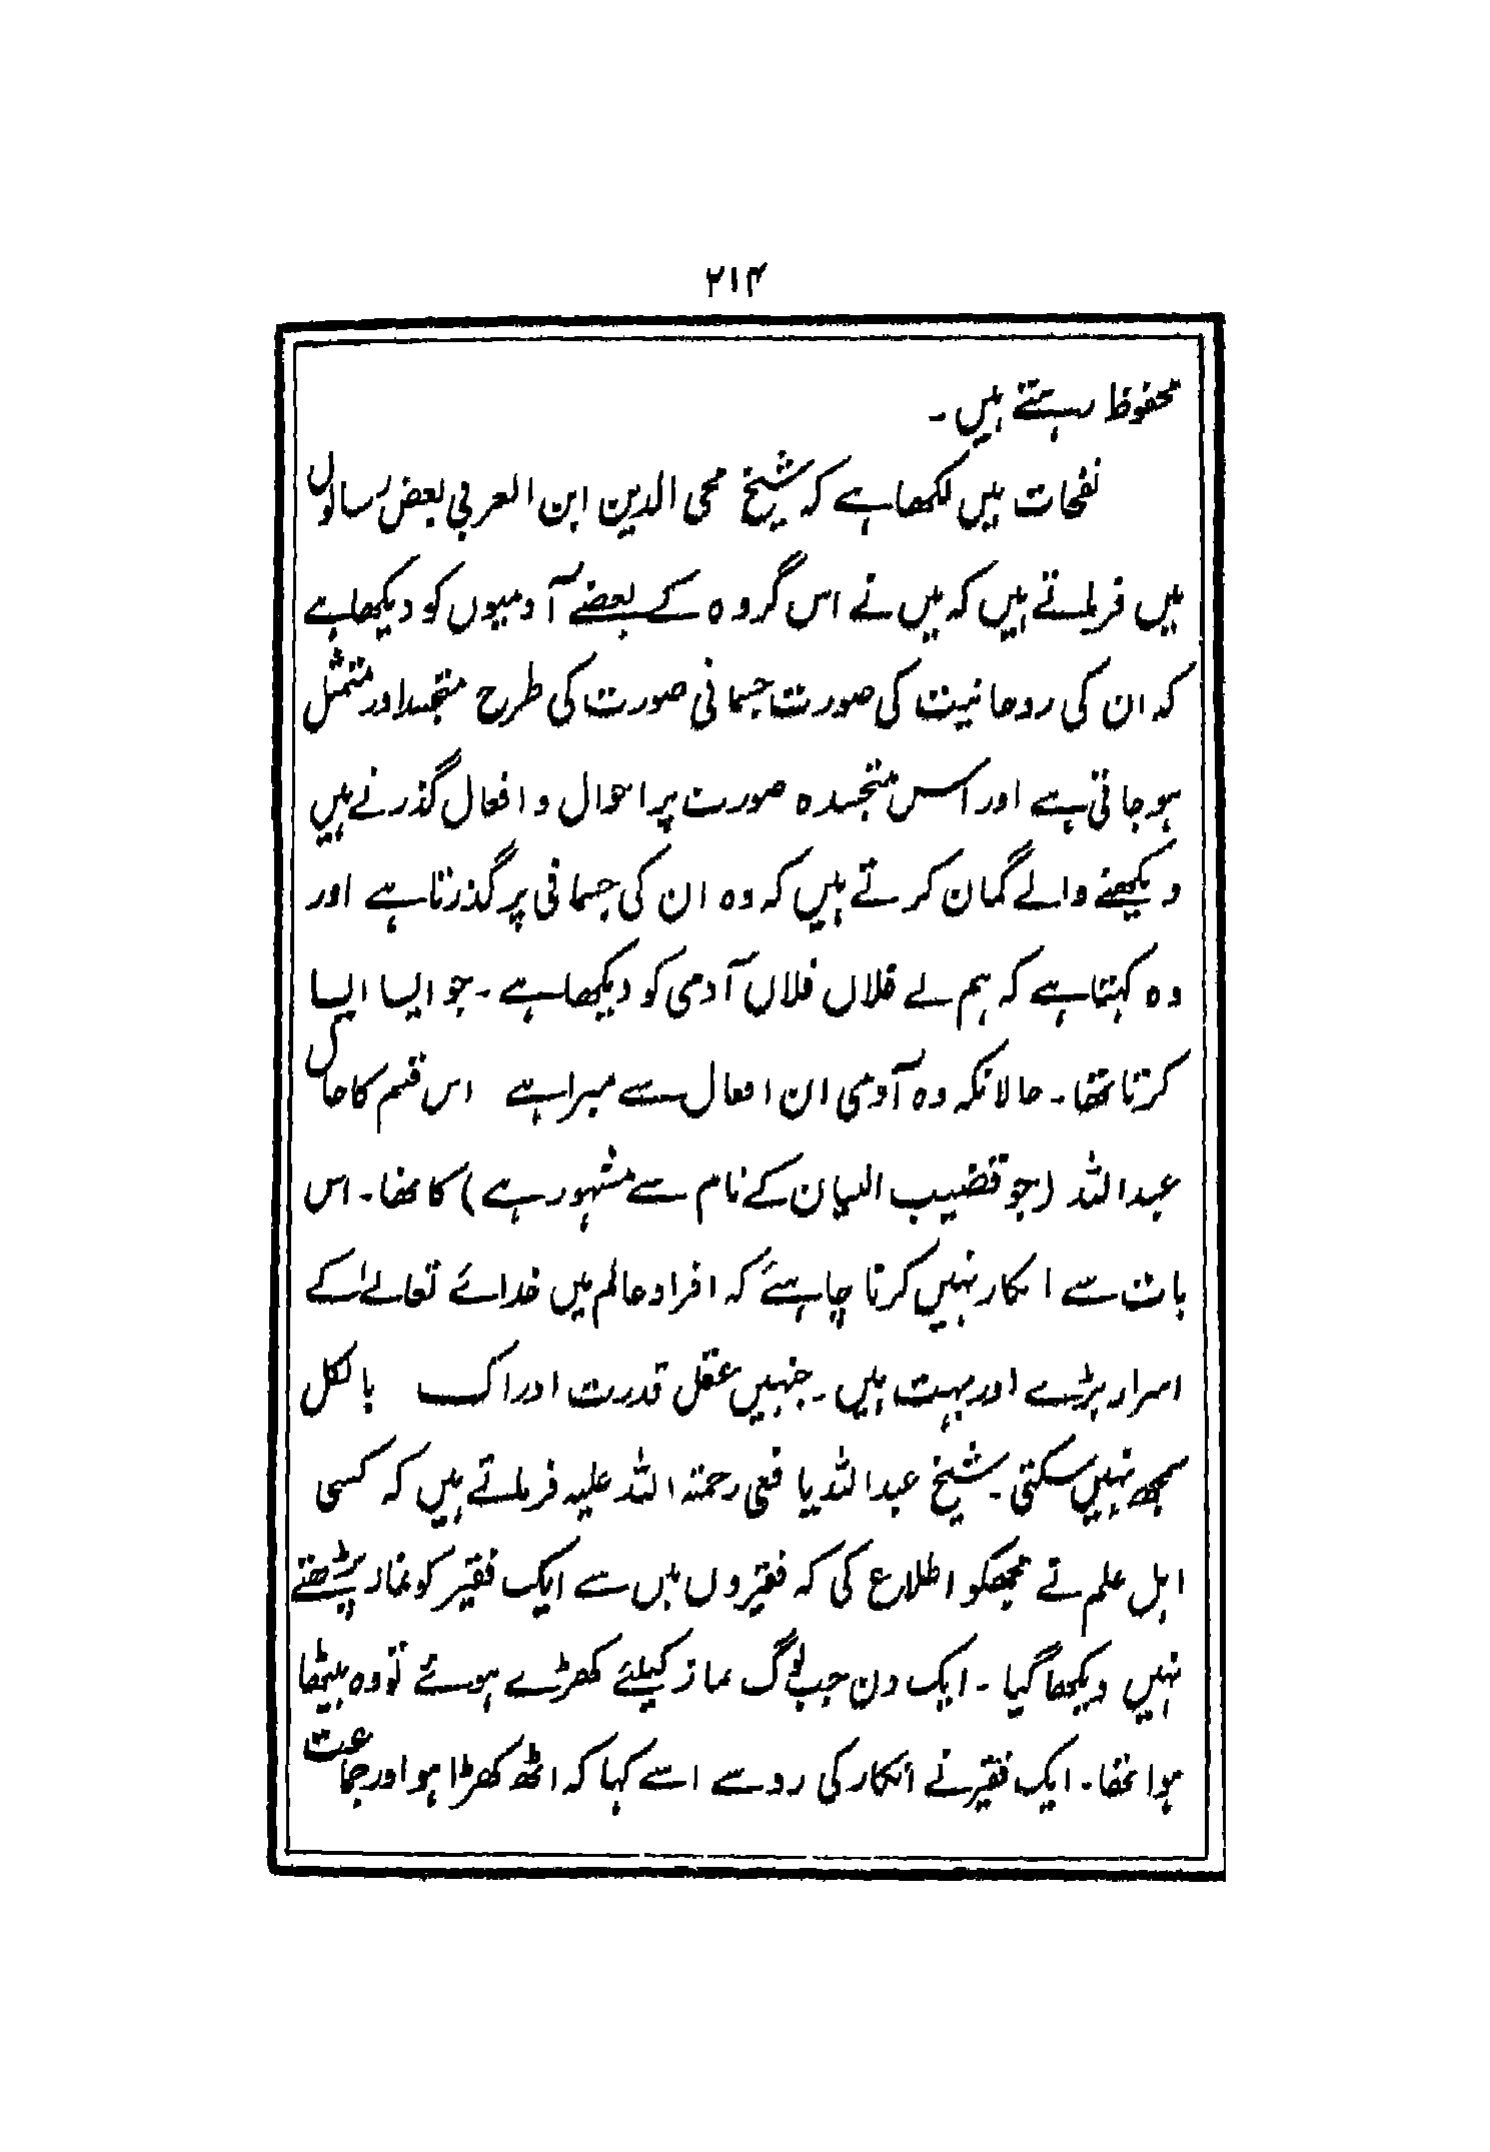 ۲۱۴
محفوظ رہتے ہیں۔
نفحات میں لکھا ہے کہ شیخ محی الدین ابن العربی بعض رسالوں
میں فرماتے ہیں کہ میں نے اس گروہ کے بعضے آدمیوں کو دیکھا ہے
کہ ان کی روحانیت کی صورت جسمانی صورت کی طرح متجسد اور متمثل
ہو جاتی ہے اور اس متجسدہ صورت پر احوال و افعال گذرتے ہیں
دیکھنے والے گمان کرتے ہیں کہ وہ ان کی جسمانی پر گذرتا ہے اور
وہ کہتا ہے کہ ہم نے فلاں فلاں آدمی کو دیکھا ہے۔ جو ایسا ایسا
کرتا تھا۔ حالانکہ وہ آدمی ان افعال سے مبرا ہے اس قسم کا حال
عبداللہ (جو قضیب البان کے نام سے مشہور ہے) کا تھا۔ اس
بات سے انکار نہیں کرنا چاہئے کہ افراد عالم میں خدائے تعالےٰ کے
اسرار بڑے اور بہت ہیں۔ جنہیں عقل قدرت ادراک بالکل
سمجھ نہیں سکتی۔ شیخ عبداللہ یافعی رحمتہ اللہ علیہ فرماتے ہیں کہ کسی
اہل علم نے مجھکو اطلاع کی کہ فقیروں میں سے ایک فقیر کو نماز پڑھتے
نہیں دیکھا گیا۔ ایک دن جب لوگ نماز کیلئے کھڑے ہوئے تو وہ بیٹھا
ہوا تھا۔ ایک فقیر نے انکار کی رو سے اسے کہا کہ اٹھ کھڑا ہو اور جماعت